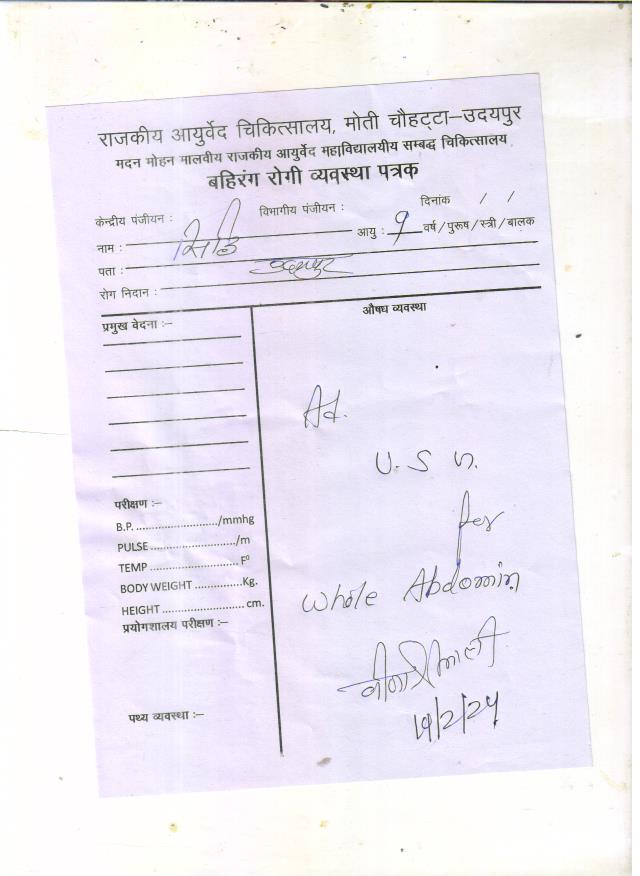 राजकीय आयुर्वेद चिकित्सालय, मोती चौहट्टा–उदयपुर
मदन मोहन मालवीय राजकीय आयुर्वेद महाविद्यालयीय सम्बद्ध चिकित्सालय
बहिरंग रोगी व्यवस्था पत्रक
केन्द्रीय पंजीयन : विभागीय पंजीयन : दिनांक / /
नाम : आयु : 9 वर्ष/पुरूष/स्त्री/बालक
पता : उदयपुर
रोग निदान :
प्रमुख वेदना :–
औषध व्यवस्था
Ad.
U. S. G.
for
Whole Abdomin
परीक्षण :–
B.P. ......................../mmhg
PULSE ........................./m
TEMP ......................... F°
BODY WEIGHT ..............Kg.
HEIGHT ........................ cm.
प्रयोगशालय परीक्षण :–
पथ्य व्यवस्था :–
19/2/24